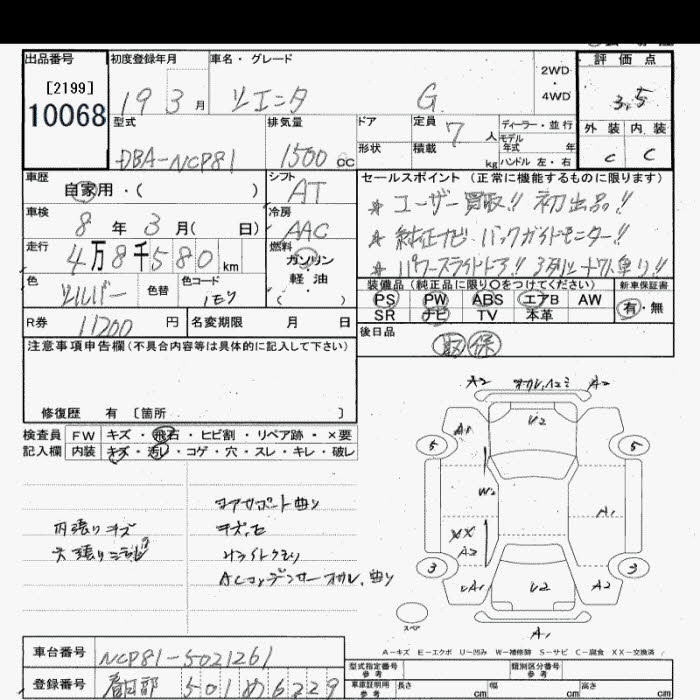 出品番号 初度登録年月 車名・グレード 2WD・4WD 評価点
[2199]
10068 19 3月 シエンタ G 3.5
型式 排気量 ドア 定員 7人 ディーラー・並行 外装 内装
DBA-NCP81 1500 cc 形状 積載 kg モデル年式 年 C C
ハンドル 左・右
車歴 シフト セールスポイント (正常に機能するものに限ります)
自家用・( ) AT * ユーザー買取!! 初出品!!
車検 冷房
8年 3月( 日) AAC * 純正ナビ・バックガイドモニター!!
走行 燃料
4万8千580 km ガソリン * パワースライドドア!! 3列シート
軽油 装備品 (純正品に限り○をつけてください) 新車保証書
色 シルバー 色替 色コード PS PW ABS エアB AW 有・無
SR ナビ TV 本革
R券 11200 円 名変期限 月 日 後日品
取 保
注意事項申告欄(不具合内容等は具体的に記入して下さい)
修復歴 有 [箇所 ]
検査員 FW キズ・飛石・ヒビ割・リペア跡・×要
記入欄 内装 キズ・汚レ・コゲ・穴・スレ・キレ・破レ
コアサポート曲り
内張りキズ
ACコンデンサー
A2 A2
U2
A1
5 5
W2
A1
XX
A2
3 3
A1 U2 A2
スペア
A1
A-キズ E-エクボ U-凹み W-補修跡 S-サビ C-腐食 XX-交換済
車台番号 NCP81-5021261 型式指定番号 参考 類別区分番号 参考
登録番号 春日部 501 め 6229 車庫証明用 参考 長さ cm 幅 cm 高さ cm